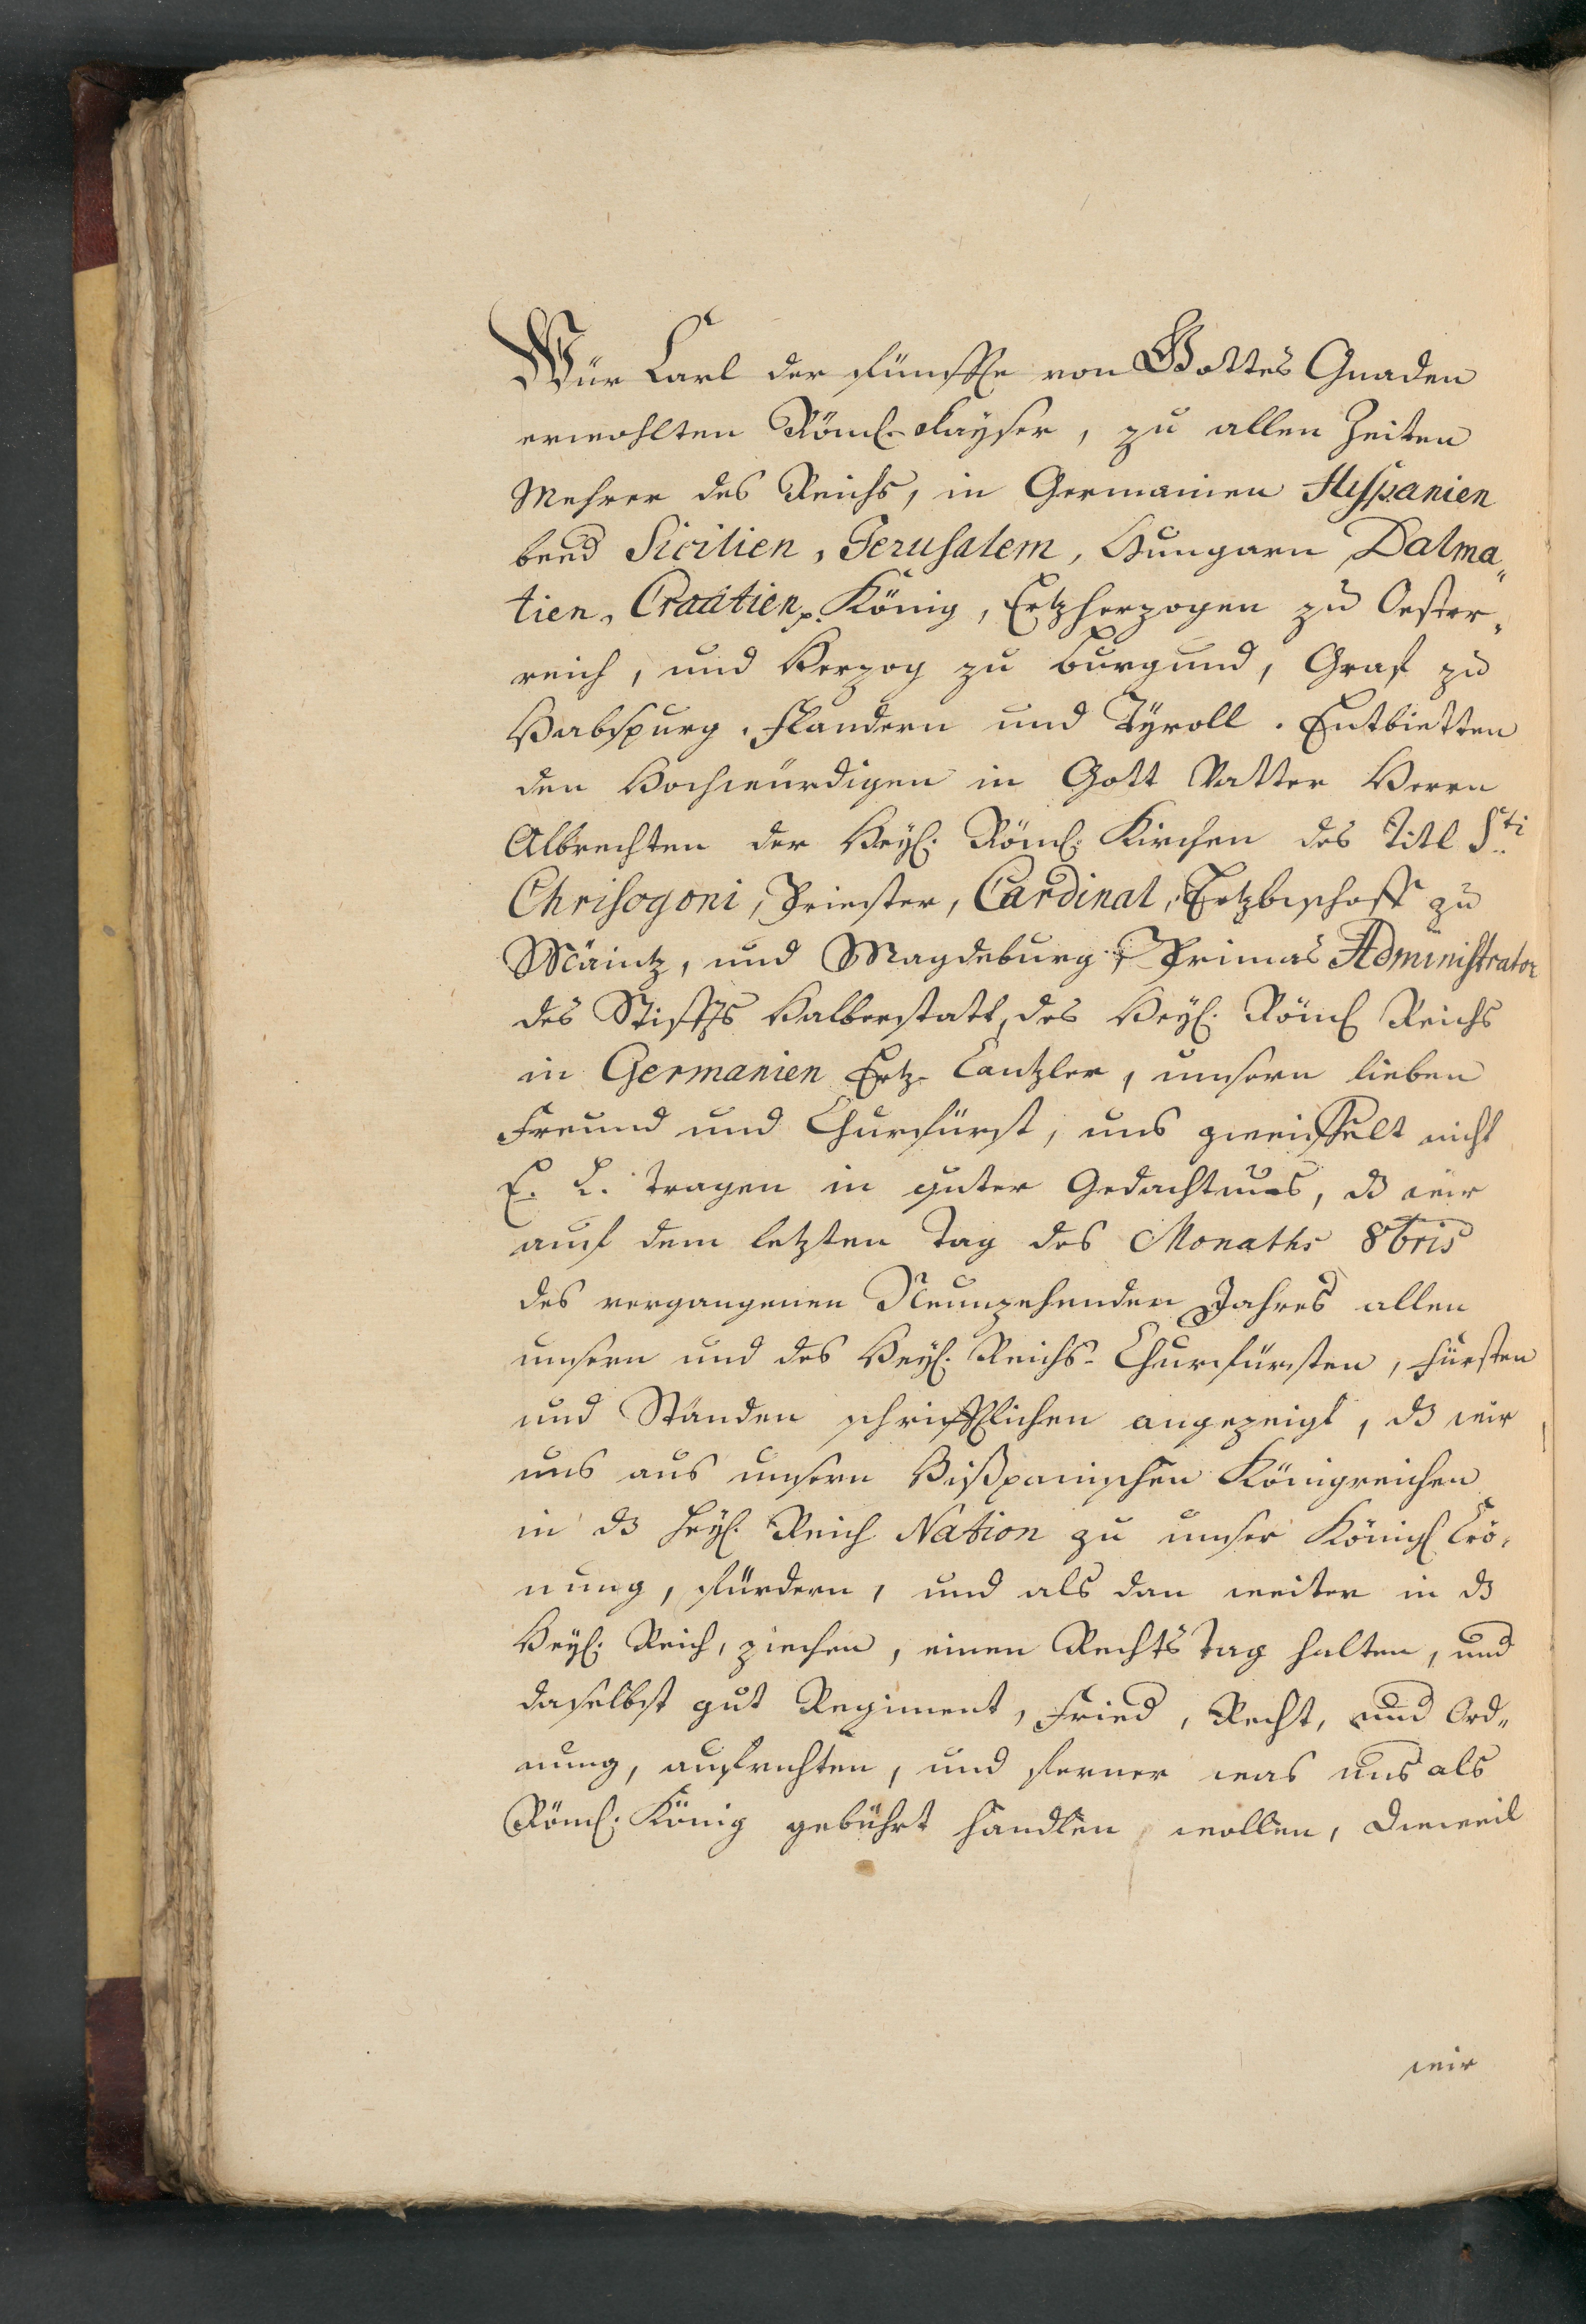 Wür Carl der fünffte von Gottes Gnaden
erwohlten Röml. Kayser, zu allen Zeiten
Mehrer des Reichs, in Germanien Hispanien
beed Sicilien, Jerusalem, Hungarn Dalma„
tien, Croatien p. König, Ertzherzogen zu Oester„
reich, und Herzog zu Burgund, Graf zu
Habspurg, Flandern und Tÿroll. Entbietten
den Hochwürdigen in Gott Vatter Herrn
Albrechten der Heyl. Röml. Kirchen des Titl Sti
Chrisogoni, Priester, Cardinal, Ertzbischoff zu
Mäintz, und Magdeburg, Primas Administrator
des Stiffts Halberstatt, des Heyl. Röml Reichs
in Germanien Ertz-Cantzler, unsern lieben
Freund und Churfürst, uns zweiffelt nicht
E. L. tragen in guter Gedachtnus, dz wir
auf dem letzten Tag des Monaths 8bris
des vergangenen Neunzehenden Jahres allen
unsern und des Heyl. Reichs-Churfürsten, Fürsten
und Ständen schrifftlichen angezeigt, dz wir
uns aus unsern Hißpanischen Königreichen
in dz Heyl. Reich Nation zu unser Königl Crö„
nung, fürdern, und als dan weiter in dz
Heyl. Reich, ziechen, einen Rechts Tag halten, und
daselbst gut Regiment, Fried, Recht, und Ord„
nung, aufrichten, und ferner was uns als
Röml. König gebührt handlen, wollen, dieweil
wir